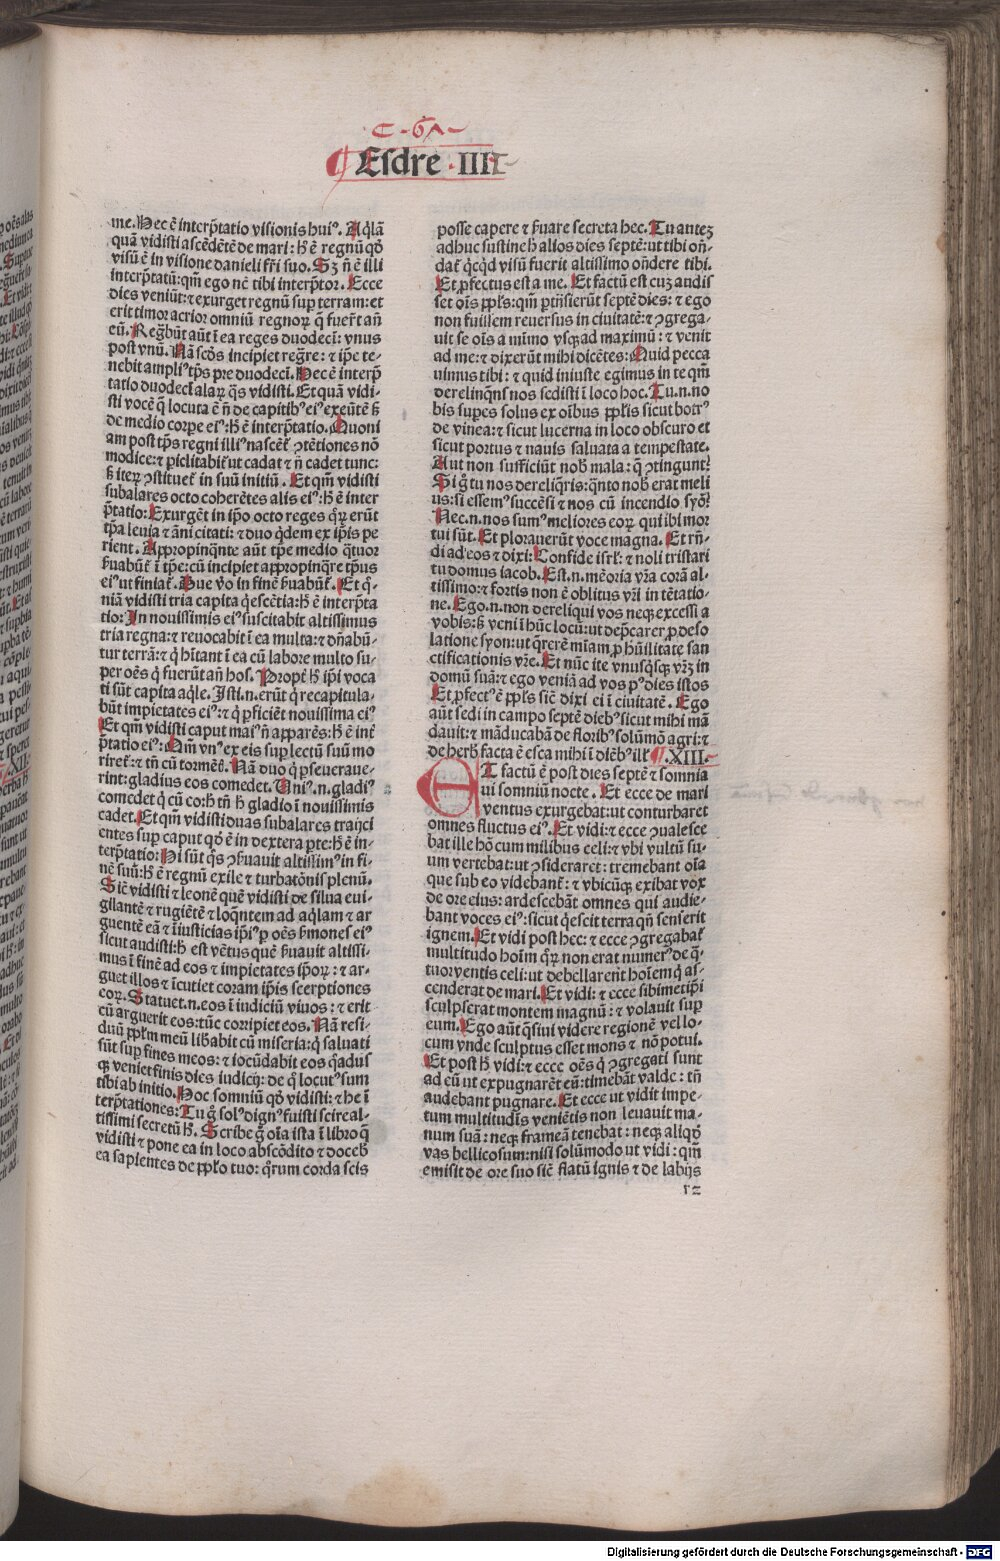 C - 6A -
Esdre .IIII
me. Hec ē interp̄tatio visionis huiꝰ. Aq̄lā
quā vidisti ascēdētē de mari: h̄ ē regnū qd̄
visū ē in visione danieli fr̄i suo. Sꝫ n̄ ē illi
interp̄tatū: qm̄ ego nc̄ tibi interp̄tor. Ecce
dies veniūt: ⁊ exurget regnū sup̄ terram: et
erit timor acrior omniū regnoꝝ q̄ fuer̄t añ
eū. Regb̄ūt aūt ī ea reges duodecī: vnus
post vnū. Nā scd̄s incipiet regr̄e: ⁊ ip̄e te-
nebit ampliꝰ tp̄s pre duodecī. Hec ē interp̄
tatio duodecī alaꝝ qs̄ vidisti. Et quā vidi-
sti vocē q̄ locuta ē ⁊ n̄ de capitibꝰ eiꝰ exeūtē ß
de medio corpe eiꝰ: h̄ ē interp̄tatio. Quoni
am post tp̄s regni illiꝰ nascēt̄ ꝯtētiones nō
modice: ⁊ p̄iclitabit̄ ut cadat ⁊ n̄ cadet tunc:
ß iteꝝ ꝯstituet̄ in suū initiū. Et qm̄ vidisti
subalares octo coherētes alis eiꝰ: h̄ ē inter
p̄tatio: Exurgēt in ip̄o octo reges qꝝ̄ erūt
tp̄a leuia ⁊ āni citati: ⁊ duo qd̄em ex ip̄is pe
rient. Appropinq̄nte aūt tp̄e medio q̄tuor
ẜuabūt̄ ī tp̄e: cū incipiet appropinq̄re tp̄us
eiꝰ ut finiat̄. Due v̄o in finē ẜuabūt̄. Et q̄-
niā vidisti tria capita q̄escētia: h̄ ē interp̄ta
tio: In nouissimis eiꝰ suscitabit altissimus
tria regna: ⁊ reuocabit ī ea multa: ⁊ dn̄abū-
tur terrā: ⁊ q̄ hītant ī ea cū labore multo su-
per oēs q̄ fuerūt añ hos. Propt̄ h̄ ip̄i voca
ti sūt capita aq̄le. Isti.n.erūt q̄ recapitula-
būt impietates eiꝰ: ⁊ q̄ p̄ficiēt nouissima eiꝰ
Et qm̄ vidisti caput maiꝰ n̄ apparēs: h̄ ē int̄
p̄tatio eiꝰ: Qm̄ vnꝰ ex eis sup̄ lectū suū mo
riret̄: ⁊ tn̄ cū tormēt̄. Nā duo q̄ p̄seuerauē-
rint: gladius eos comedet. Uniꝰ.n.gladiꝰ
comedet q̄ cū eo: h̄ tn̄ h̄ gladio ī nouissimis
cadet. Et qm̄ vidisti duas subalares traijci
entes sup̄ caput qd̄ ē in dextera pte: h̄ ē in-
terp̄tatio: Hi sūt qs̄ ꝯẜuauit altissimꝰ in fi-
nē suū: h̄ ē regnū exile ⁊ turbatōnis plenū.
Sic̄ vidisti ⁊ leonē quē vidisti de silua eui-
gilantē ⁊ rugiētē ⁊ loq̄ntem ad aq̄lam ⁊ ar
guentē eā ⁊ iiusticias ip̄iꝰ p̄ oēs ẜmones eiꝰ
sicut audisti: h̄ est vētus quē ẜuauit altissi-
mus ī finē ad eos ⁊ impietates ip̄oꝝ: ⁊ ar-
guet illos ⁊ īcutiet coram ip̄is scerptiones
eoꝝ. Statuet.n.eos ī iudiciū viuos: ⁊ erit
cū arguerit eos: tūc corripiet eos. Nā resi-
duū pp̄lm meū lib̄abit cū miseria: q̄ saluati
sūt sup̄ fines meos: ⁊ iocūdabit eos q̄adus
qꝫ veniet finis dies iudicij: de q̄ locutꝰ sum
tibi ab initio. Hoc somniū qd̄ vidisti: ⁊ he ī
terp̄tationes: Tu ḡ solꝰ dignꝰ fuisti scire al-
tissimi secretū h̄. Scribe ḡ oīa ista ī libro q̄
vidisti ⁊ pone ea in loco abscōdito ⁊ doceb̄
ea sapientes de pp̄lo tuo: q̄rum corda scis
posse capere ⁊ ẜuare secreta hec. Tu anteꝫ
adhuc sustine h̄ alios dies septē: ut tibi on̄-
dat̄ qc̄qd̄ visū fuerit altissimo on̄dere tibi.
Et p̄fectus est a me. Et factū est cuꝫ audis
set oīs pp̄ls: qm̄ pt̄nsierūt septē dies: ⁊ ego
non fuissem reuersus in ciuitatē: ⁊ ꝯgrega-
uit se oīs a mīmo vsqꝫ ad maximū: ⁊ venit
ad me: ⁊ dixerūt mihi dicētes: Quid pecca
uimus tibi: ⁊ quid iniuste egimus in te qm̄
derelinqn̄s nos sedisti ī loco hoc. Tu.n.no
bis supes solus ex oībus pp̄lis sicut botrꝰ
de vinea: ⁊ sicut lucerna in loco obscuro et
sicut portus ⁊ nauis saluata a tempestate.
Aut non sufficiūt nob̄ mala: q̄ ꝯtingunt?
Si ḡ tu nos dereliq̄ris: q̄nto nob̄ erat meli
us: si essemꝰ succēsi ⁊ nos cū incendio syō?
Nec.n.nos sumꝰ meliores eoꝝ qui ibi mor
tui sūt. Et plorauerūt voce magna. Et rn̄-
di ad eos ⁊ dixi: Confide isrl̄: ⁊ noli tristari
tu domus iacob. Est.n.mēoria vr̄a corā al-
tissimo: ⁊ fortis non ē oblitus vr̄i in tētatio-
ne. Ego.n.non dereliqui vos neqꝫ excessi a
vobis: ß veni ī hūc locū: ut dep̄carer p̄ deso
latione syon: ut q̄rerē mīam p̄ hūilitate san
ctificationis vr̄e. Et nūc ite vnusqs̄qꝫ vr̄ꝫ in
domū suā: ⁊ ego veniā ad vos pꝰ dies istos
Et p̄fectꝰ ē pp̄ls sic̄ dixi ei ī ciuitatē. Ego
aūt sedi in campo septē diebꝰ sicut mihi mā
dauit: ⁊ māducabā de floribꝰ solūmō agri: ⁊
de herb̄ facta ē esca mihi ī dieb̄ꝰ ill̄ .XIII.
ET factū ē post dies septē ⁊ somnia
ui somniū nocte. Et ecce de mari
ventus exurgebat: ut conturbaret
omnes fluctus eiꝰ. Et vidi: ⁊ ecce ꝯualesce
bat ille hō cum milibus celi: ⁊ vbi vultū su-
um vertebat: ut ꝯsideraret: tremebant oīa
que sub eo videbant̄: ⁊ vbicūqꝫ exibat vox
de ore eius: ardescebāt omnes qui audie-
bant voces eiꝰ: sicut q̄escit terra qn̄ senserit
ignem. Et vidi post hec: ⁊ ecce ꝯgregabat̄
multitudo hoīm qꝝ̄ non erat numerꝰ de q̄-
tuor ventis celi: ut debellarent hoīem q̄ as-
cenderat de mari. Et vidi: ⁊ ecce sibimetip̄i
sculpserat montem magnū: ⁊ volauit sup̄
eum. Ego aūt q̄siui videre regionē vel lo-
cum vnde sculptus esset mons ⁊ nō potui.
Et post h̄ vidi: ⁊ ecce oēs q̄ ꝯgregati sunt
ad eū ut expugnarēt eū: timebāt valde: tn̄
audebant pugnare. Et ecce ut vidit impe-
tum multitudīs veniētis non leuauit ma-
num suā: neqꝫ frameā tenebat: neqꝫ aliqd̄
vas bellicosum: nisi solūmodo ut vidi: qm̄
emisit de ore suo sic̄ flatū ignis ⁊ de labijs
r2
Digitalisierung gefördert durch die Deutsche Forschungsgemeinschaft - DFG